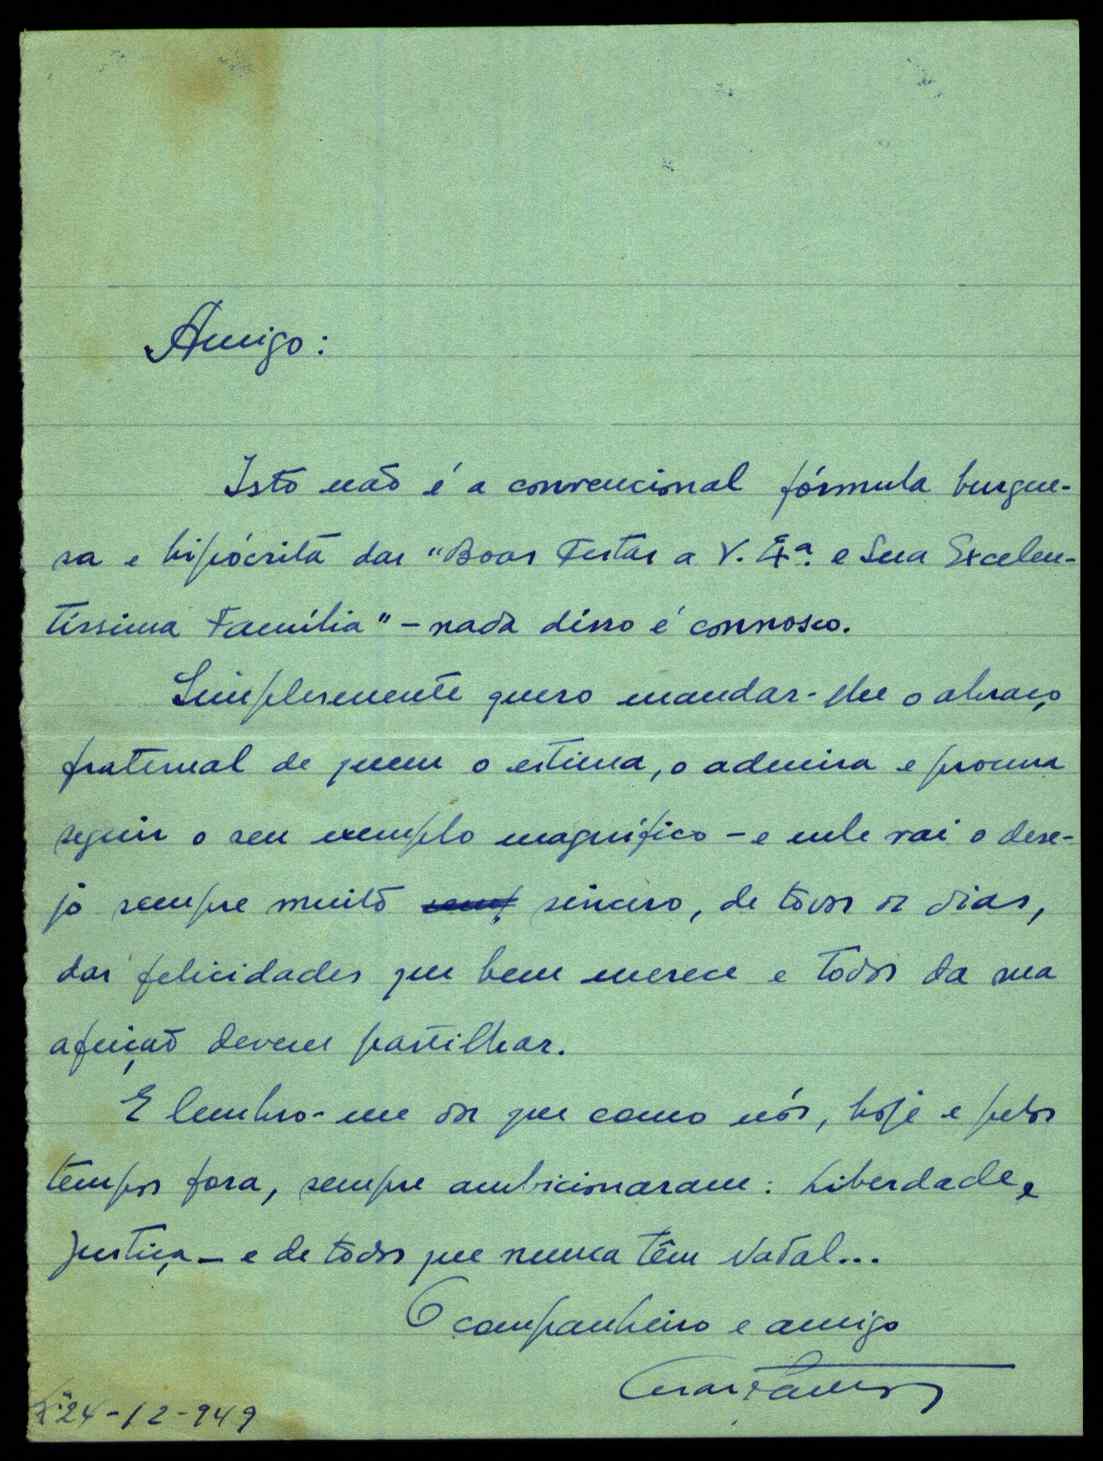 Amigo:
Isto não é a convencional fórmula burgue-
sa e hipócrita das "Boas Festas a V. Exª. e Sua Excelen-
tíssima Família" - nada disso é connosco.
Simplesmente quero mandar-lhe o abraço
fraternal de quem o estima, o admira e procura
seguir o seu exemplo magnífico - e nele vai o dese-
jo sempre muito sincero, de todos os dias,
das felicidades que bem merece e todos da sua
afeição devem partilhar.
E lembro-me dos que como nós, hoje e pelos
tempos fora, sempre ambicionaram: Liberdade e
Justiça - e de todos que nunca têm Natal...
O companheiro e amigo
24-12-949